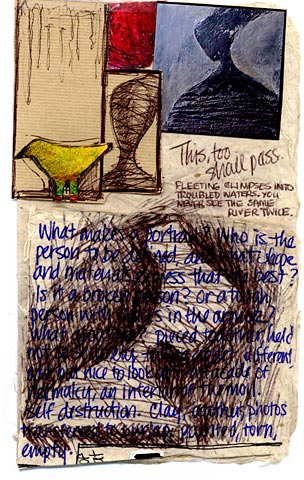 This, too
shall pass.
FLEETING GLIMPSES INTO
TROUBLED WATERS. YOU
NEVER SEE THE SAME
RIVER TWICE.
What makes a portrait? Who is the
person to be defined, and what shape
and materials express that the best?
Is it a broken person? Or a
person with in the
What Pieced together, held
not different
but nice to look facades of
normalcy, an interior of turmoil.
Self destruction. Clay, photos
transferred to painted, torn,
empty.